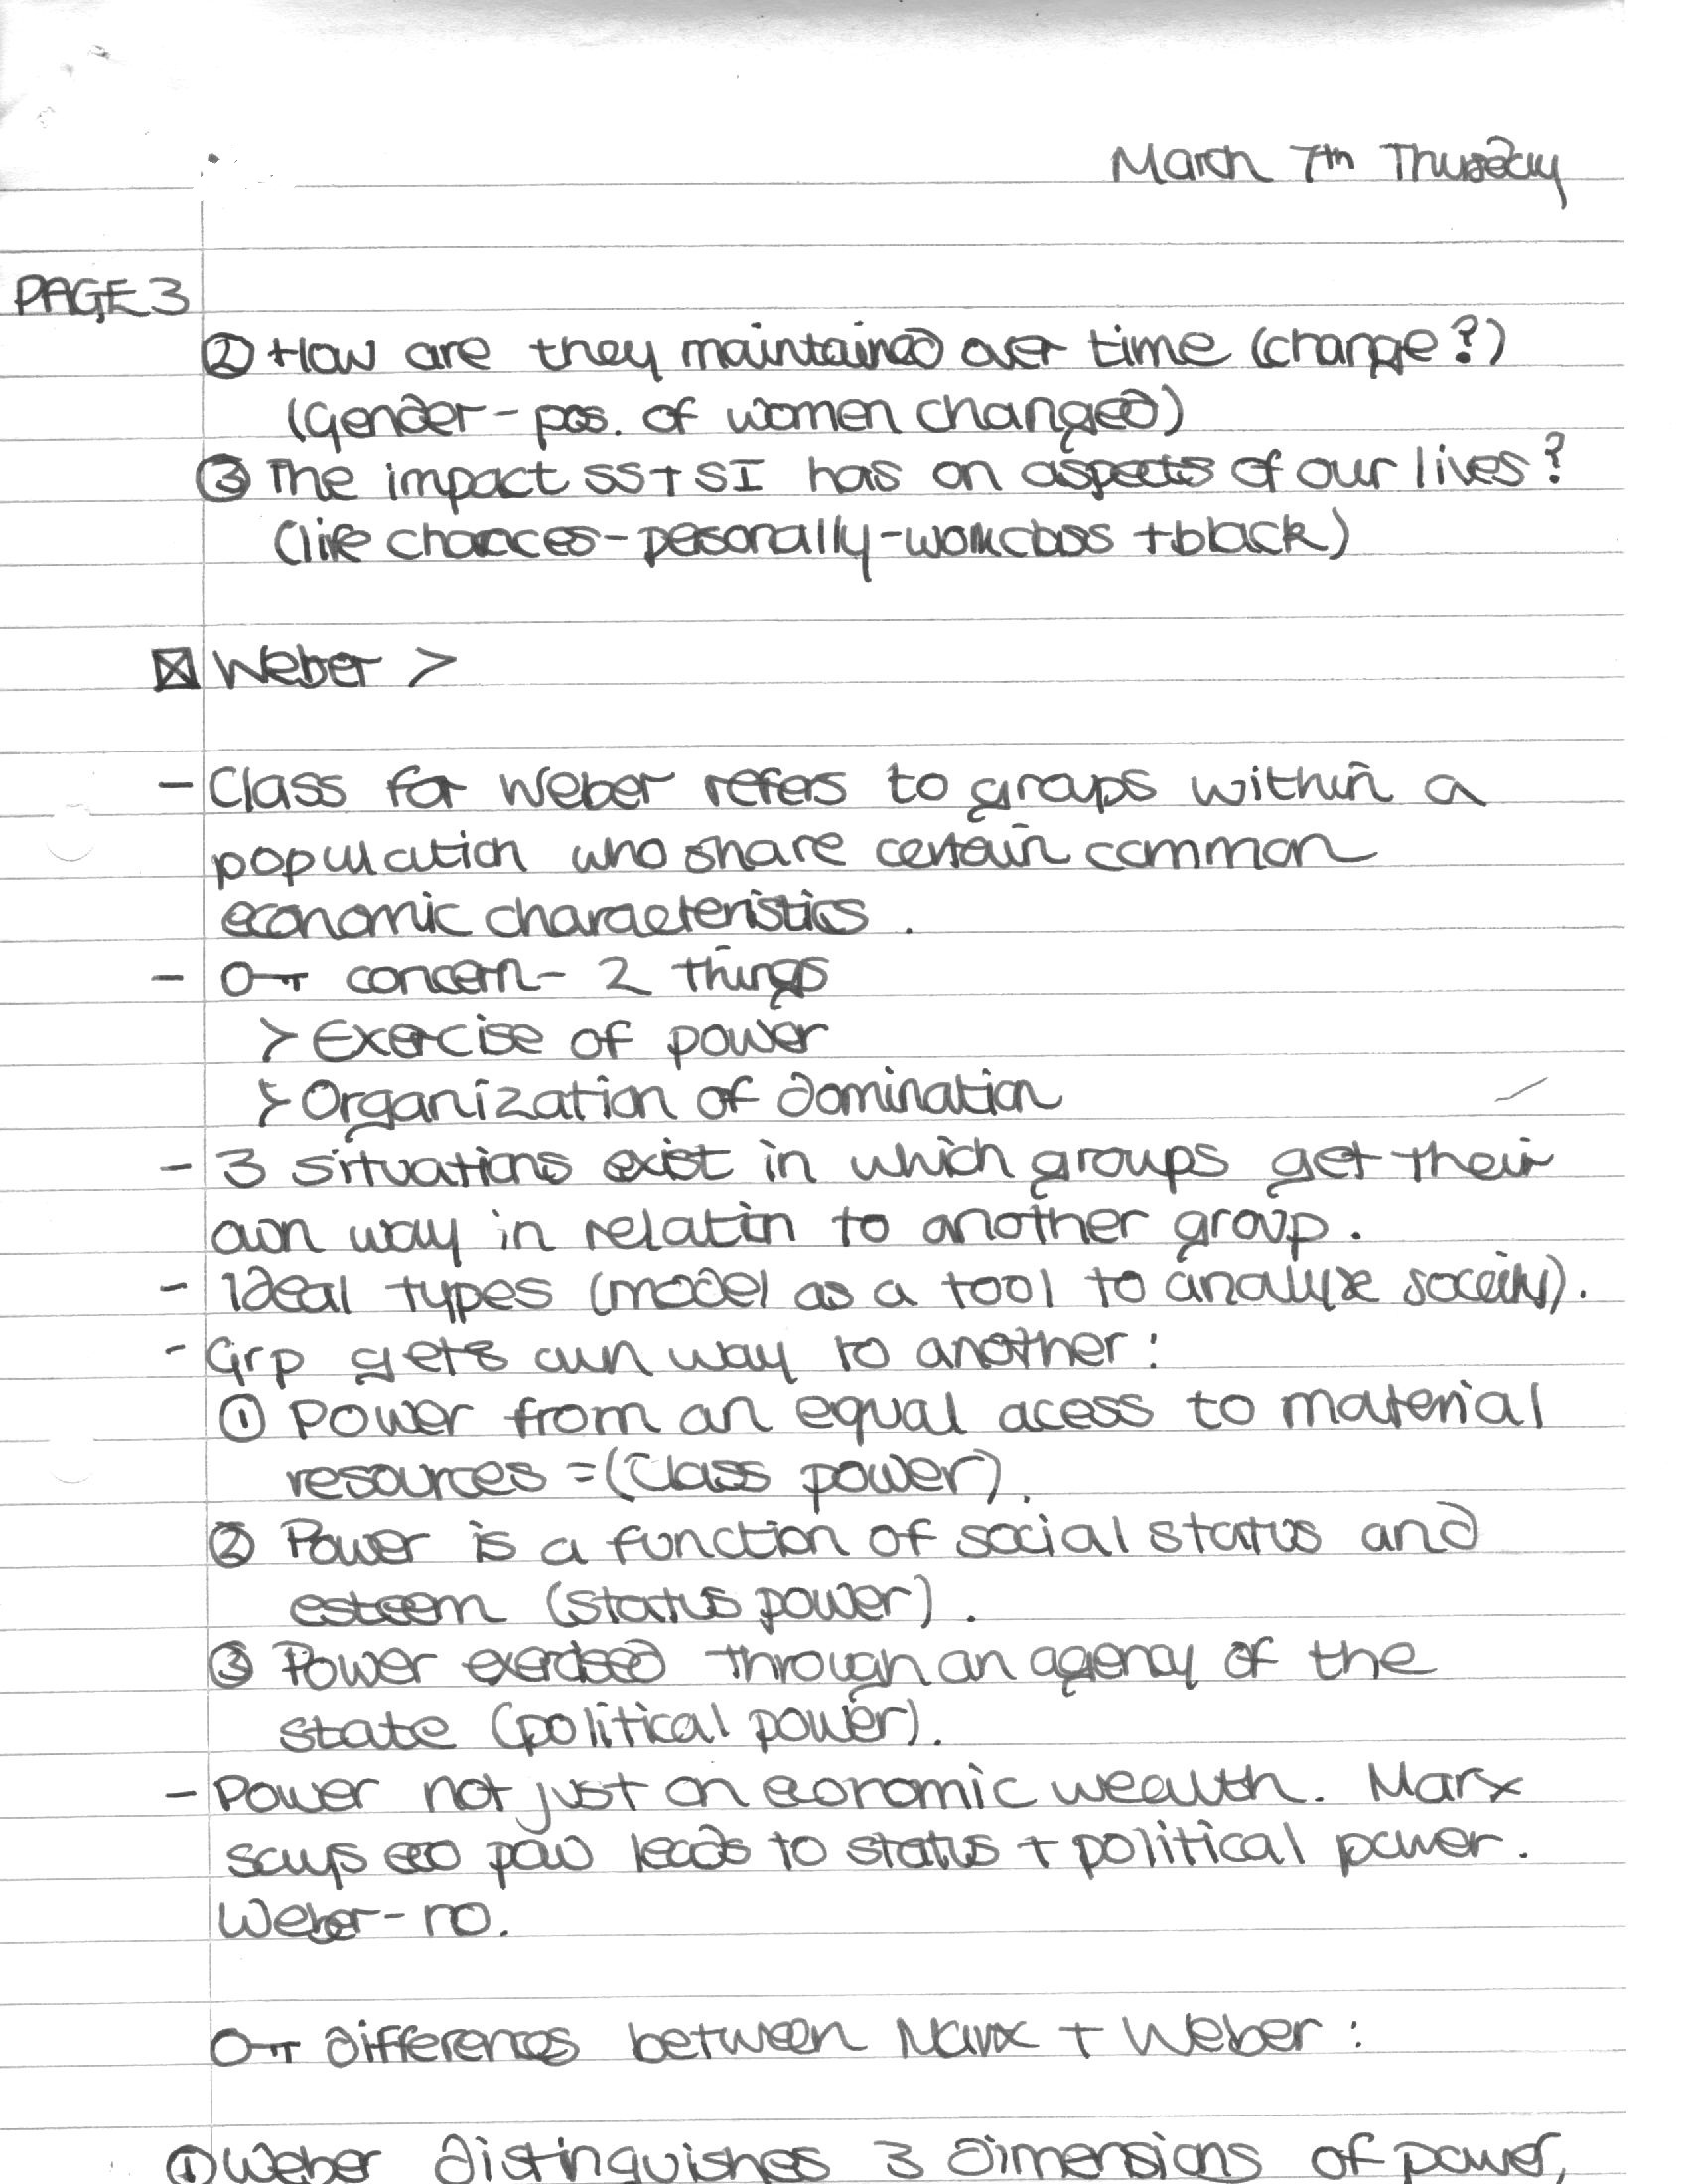 March 7th Thursday
PAGE 3
② How are they maintained over time (change?)
(Gender - pos. of women changed)
③ The impact SS + SI has on aspects of our lives?
(life chances - personally - workclass + black)
☒ Weber >
- Class for Weber refers to groups within a
population who share certain common
economic characteristics.
- concern - 2 things
> Exercise of power
> Organization of domination
- 3 situations exist in which groups get their
own way in relatin to another group.
- Ideal types (model as a tool to analyze society).
- Grp gets own way to another:
① Power from an equal acess to material
resources = (Class power).
② Power is a function of social status and
esteem (status power).
③ Power exercised through an agency of the
state (political power).
- Power not just on economic wealth. Marx
says eco pow leads to status + political power.
Weber - no.
differences between Marx + Weber:
① Weber distinguishes 3 dimensions of power,